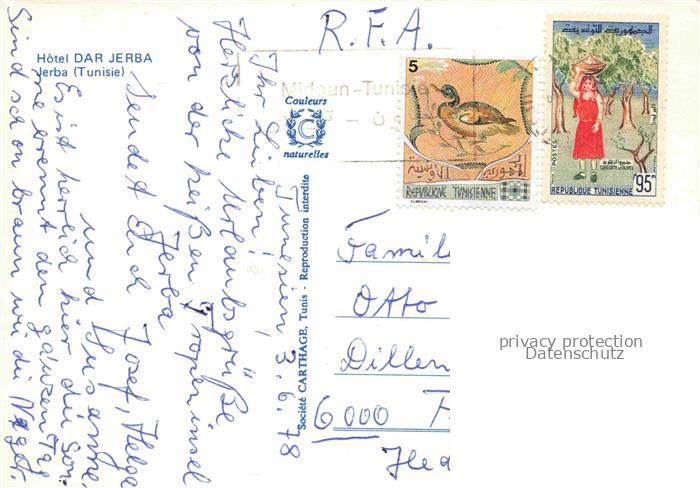 R.F.A.
Hôtel DAR JERBA
Jerba (Tunisie)
Couleurs
C
naturelles
Société CARTHAGE, Tunis - Reproduction interdite
Midoun-Tunisie
5
REPUBLIQUE TUNISIENNE
الجمهورية التونسية
POSTES
REPUBLIQUE TUNISIENNE
95
Tunesien, 3.6.78
Ihr Lieben!
Herzliche Urlaubsgrüße
von der heißen Tropeninsel
Jerba
sendet Euch Josef, Helga
und Susanne,
Es ist herrlich hier die Son-
ne brennt den ganzen Tag
Sind schon braun wie die Neger
Famil
Otto
Dillen
6000 F
privacy protection
Datenschutz